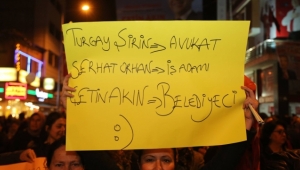 TURGAY ŞİRİN ⇒ AVUKAT
SERHAT ORHAN ⇒ İŞ ADAMI
ÇETİN AKIN ⇒ BELEDİYECİ
:)